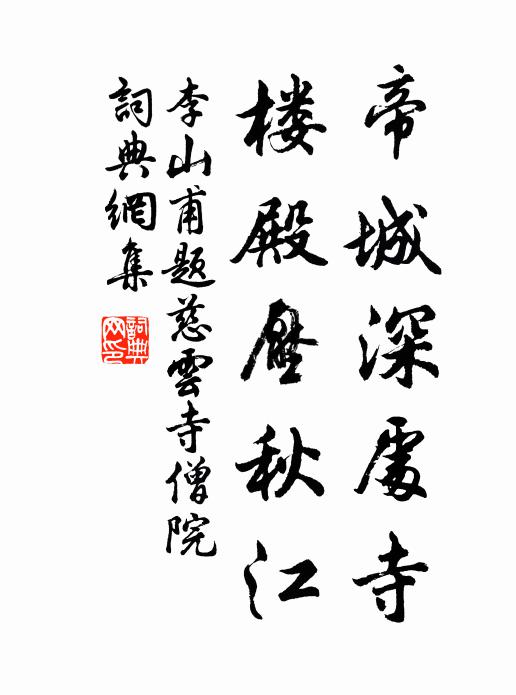 帝城深處寺
楼殿壓秋江
李山甫題慈雲寺僧院
詞典網集
詞典网印